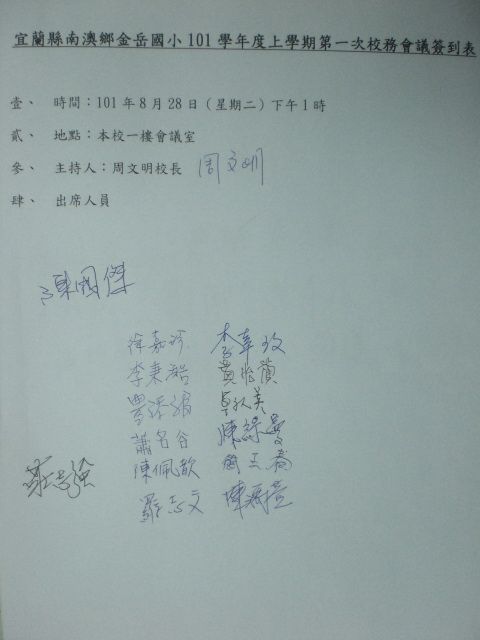 宜蘭縣南澳鄉金岳國小101學年度上學期第一次校務會議簽到表
壹、 時間：101年8月28日（星期二）下午1時
貳、 地點：本校一樓會議室
參、 主持人：周文明校長 周文明
肆、 出席人員
陳國傑
徐嘉 李
李秉
蕭名谷 陳綠曼
陳佩歆
莊志強
羅志文 陳